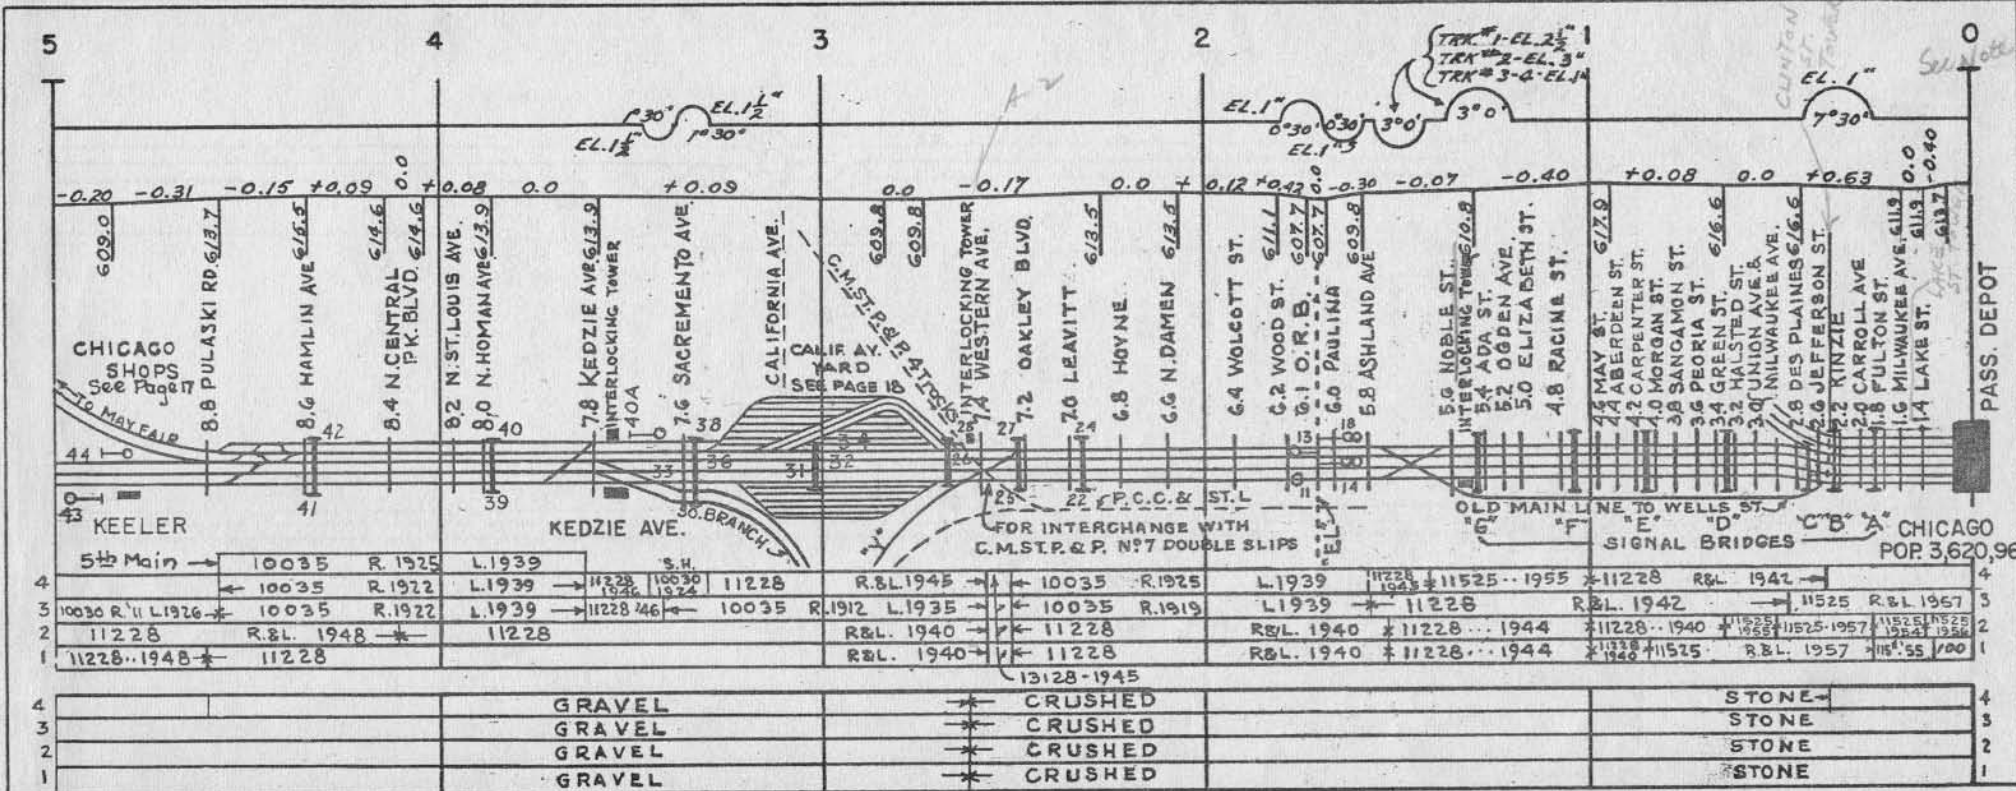 5 4 3 2 1 0
TRK #1-EL. 2½"
TRK #2-EL. 3"
TRK #3-4-EL. 1"
CLINTON ST. TOWER
See Note
1°30' EL. 1½"
EL. 1½" 1°30'
A 2
EL. 1" 0°30' 0°30' 3°0' 3°0'
EL. 1"
EL. 1"
7°30'
-0.20 -0.31 -0.15 +0.09 0.0 +0.08 0.0 +0.09 0.0 -0.17 0.0 + 0.12 +0.42 0.0 -0.30 -0.07 -0.40 +0.08 0.0 +0.63 0.0 -0.40
609.0
8.8 PULASKI RD. 613.7
8.6 HAMLIN AVE 615.5
8.4 N. CENTRAL PK. BLVD. 614.6 614.6
8.2 N. ST. LOUIS AVE.
8.0 N. HOMAN AVE 613.9
7.8 KEDZIE AVE. 613.9
INTERLOCKING TOWER
40A
7.6 SACREMENTO AVE.
CALIFORNIA AVE.
C.M.ST.P.& P. 4 TRACKS
609.8
609.8
INTERLOCKING TOWER
7.4 WESTERN AVE.
7.2 OAKLEY BLVD.
7.0 LEAVITT
613.5
6.8 HOYNE
6.6 N. DAMEN 613.5
6.4 WOLCOTT ST.
6.2 WOOD ST. 611.1
6.1 O.R.B. 607.7
6.0 PAULINA 607.7
5.8 ASHLAND AVE 609.8
5.6 NOBLE ST.
INTERLOCKING TOWER 610.8
5.4 ADA ST.
5.2 OGDEN AVE.
5.0 ELIZABETH ST.
4.8 RACINE ST.
4.6 MAY ST. 617.9
4.4 ABERDEEN ST.
4.2 CARPENTER ST.
4.0 MORGAN ST.
3.8 SANGAMON ST.
3.6 PEORIA ST.
3.4 GREEN ST. 616.6
3.2 HALSTED ST.
3.0 UNION AVE. &
MILWAUKEE AVE.
2.8 DES PLAINES 616.6
2.6 JEFFERSON ST.
2.2 KINZIE
2.0 CARROLL AVE
1.8 FULTON ST.
1.6 MILWAUKEE AVE. 611.9
1.4 LAKE ST. 611.9
LAKE ST. TOWER
PASS. DEPOT
CHICAGO
SHOPS
See Page 17
TO MAYFAIR
CALIF. AV.
YARD
SEE PAGE 18
44 42 40 38 36 33 31 32 27 24 13 18
43 41 39 25 22 11 14
KEELER
KEDZIE AVE.
SO. BRANCH
"Y"
P.C.C. & ST. L
FOR INTERCHANGE WITH
C.M.ST.P. & P. Nº7 DOUBLE SLIPS
"EL"
OLD MAIN LINE TO WELLS ST.
"G" "F" "E" "D" "C" "B" "A"
SIGNAL BRIDGES
CHICAGO
POP. 3,620,96
5th Main 10035 R. 1925 L. 1939 S.H.
4 10035 R. 1922 L. 1939 11228 1946 10030 1924 11228 R.&L. 1945 10035 R. 1925 L. 1939 11228 1943 11525 -- 1955 11228 R&L 1942 4
3 10030 R'11 L1926 10035 R. 1922 L. 1939 11228 '46 10035 R. 1912 L. 1935 10035 R. 1919 L. 1939 11228 R&L. 1942 11525 R.&L 1957 3
2 11228 R.&L. 1948 11228 R&L. 1940 11228 R&L. 1940 11228 ... 1944 11228 -- 1940 11525 1955 11525-1957 11525 1954 11525 1956 2
1 11228 -- 1948 11228 R&L. 1940 11228 R&L. 1940 11228 ... 1944 11228 1940 11525 R.&L. 1957 115#.'55 100 1
13128-1945
4 GRAVEL CRUSHED STONE 4
3 GRAVEL CRUSHED STONE 3
2 GRAVEL CRUSHED STONE 2
1 GRAVEL CRUSHED STONE 1